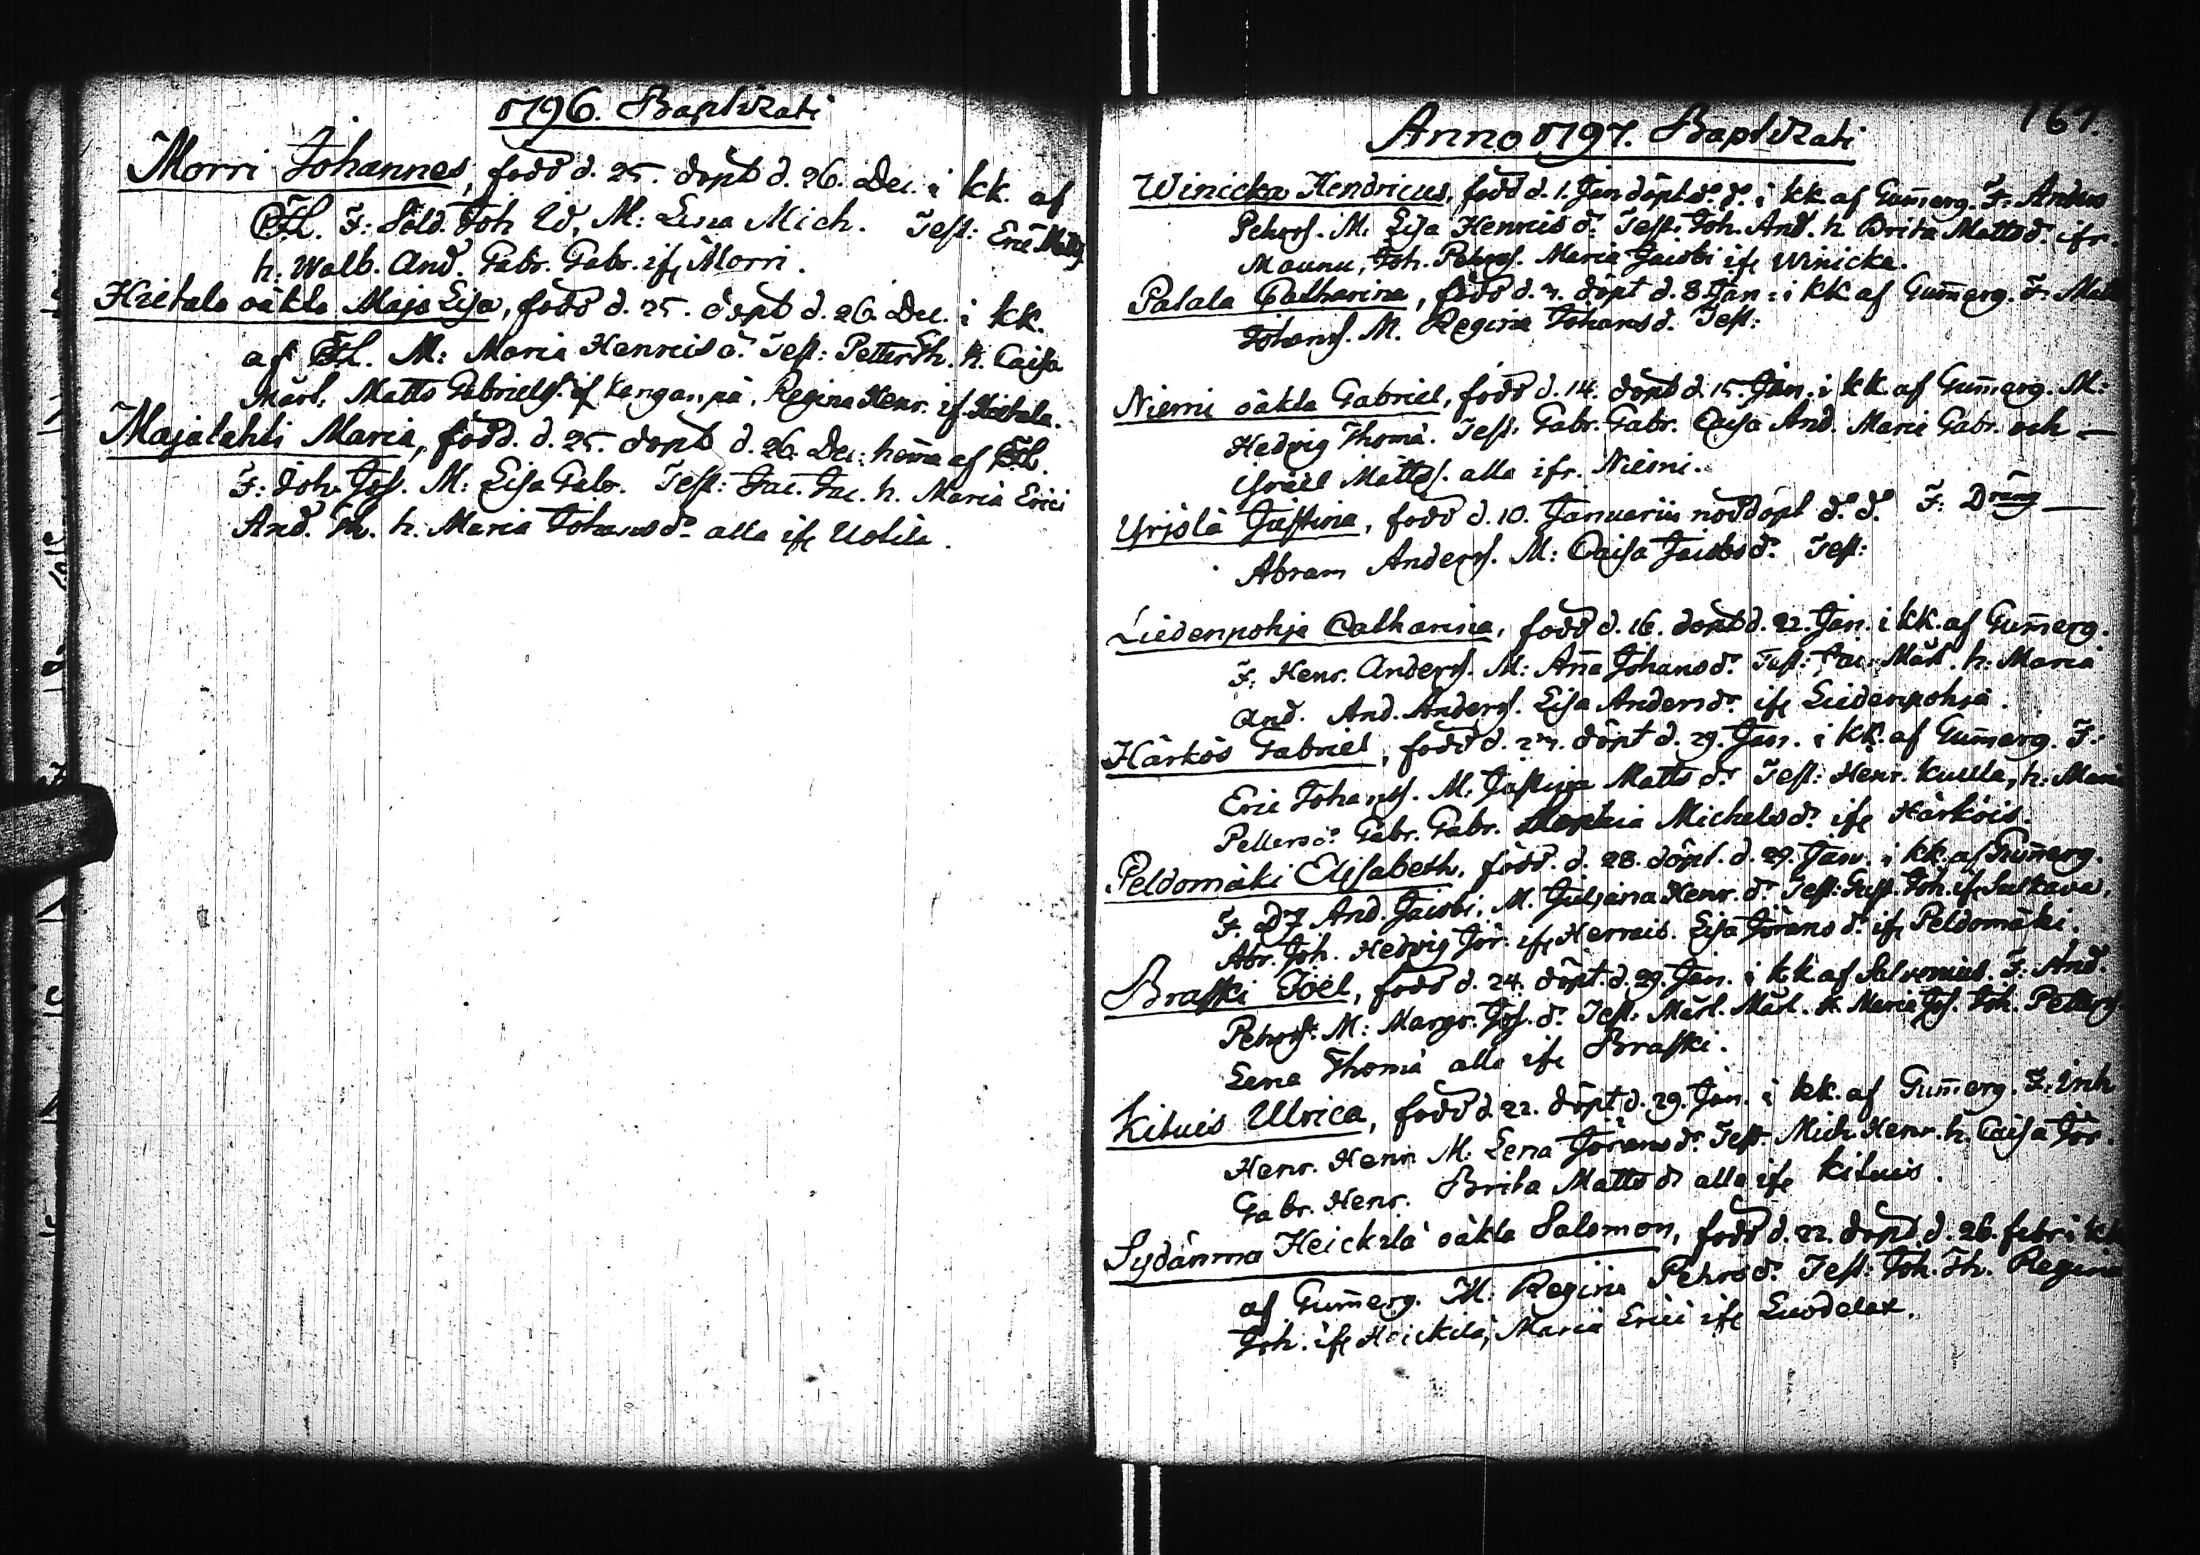 1796. Baptizati
Morri Johannes, född d. 25. döpt d. 26. Dec. i kk. af
F: Sold. Joh M: Lisa Mich. Test: Eric Matts
h. Walb. And. Gabr. Gabr. ifr Morri.
Hietala oäkta Maja Lisa, född d. 25. döpt d. 26. Dec. i kk.
af M: Maria Henricsd:r Test: Petter Th. h. Caisa
Mårt. Matts Gabriels. if Kanganpä, Regina Henr. if Hietala.
Majalahti Maria, född. d. 25. döpt d. 26. Dec: hema af
F: Joh. Jos. M: Lisa Gabr. Test: Jac. Jac. h. Maria Erici
And. Th. h. Maria Johansd:r alla ifr Uotila.
167.
Anno 1797. Baptizati
Winicka Hendricus, född d. 1. Jan döpt d:o d:o i kk. af Gum̄erg. F: Anders
Pehrss. M. Lisa Henricsd:r Test: Joh. And. h. Brita Mattsd:r ifr.
Maunu, Joh. Pehrss. Maria Jacobi ifr Winicka.
Palala Catharina, född d. 7. döpt d. 8. Jan: i kk af Gum̄erg. F: Matts
Johanss. M. Regina Johansd:r Test:
Niemi oäkta Gabriel, född d. 14. döpt d. 15. Jan: i kk. af Gum̄erg. M:
Hedvig Thomæ. Test. Gabr. Gabr. Caisa And. Maria Gabr. och —
Israel Mattss. alla ifr. Niemi.
Urjolä Justina, född d. 10. Januarii nöddöpt d:o d:o F: Dräng —
Abram Anderss. M: Caisa Jacobsd:r Test:
Liedenpohja Catharina, född d. 16. döpt d. 22. Jan. i kk. af Gum̄erg.
F: Henr. Anderss. M: An̄a Johansd:r Test: Jac. Mårt. h. Maria
And. And. Anderss. Lisa Andersd:r ifr Liedenpohja.
Härkös Gabriel, född d. 27. döpt d. 29. Jan. i kk. af Gum̄erg. F:
Eric Johanss. M. Justina Mattsd:r Test: Henr. Kulla, h. Maria
Pettersd:r Gabr. Gabr. Michelsd:r ifr Härköis.
Peldomäki Elisabeth, född. d. 28. döpt. d. 29. Jan. i kk. af Gum̄erg.
F. And. Jacobi. M. Juliana Henr. d:r Test: Gust. Joh. ifr Sulkava,
Abr. Joh. Hedvig Jör. ifr Herrais. Lisa Jöransd:r ifr Peldomäki.
Braski Joël, född d. 24. döpt. d. 29. Jan. i kk. af Salvenius. F: And.
Pehrss. M: Margr. Jos. d:r Test: Mårt. Mårt. h. Maria Jos. Joh. Petters
Lena Thomæ alla ifr Braski.
Kituis Ulrica, född d. 22. döpt d. 29. Jan. i kk. af Gum̄erg. F: Inh.
Henr. Henr. M: Lena Jöransd:r Test. Mich. Henr. h. Caisa Jör.
Gabr. Henr. Brita Mattsd:r alla ifr Kituis.
Sydänma Heickilä oäkta Salomon, född d. 22. döpt d. 26. febr i kk
af Gum̄erg. M: Regina Pehrsd:r Test: Joh. Th. Regina
Joh. ifr Heickilä, Maria Erici ifr Luodelax.